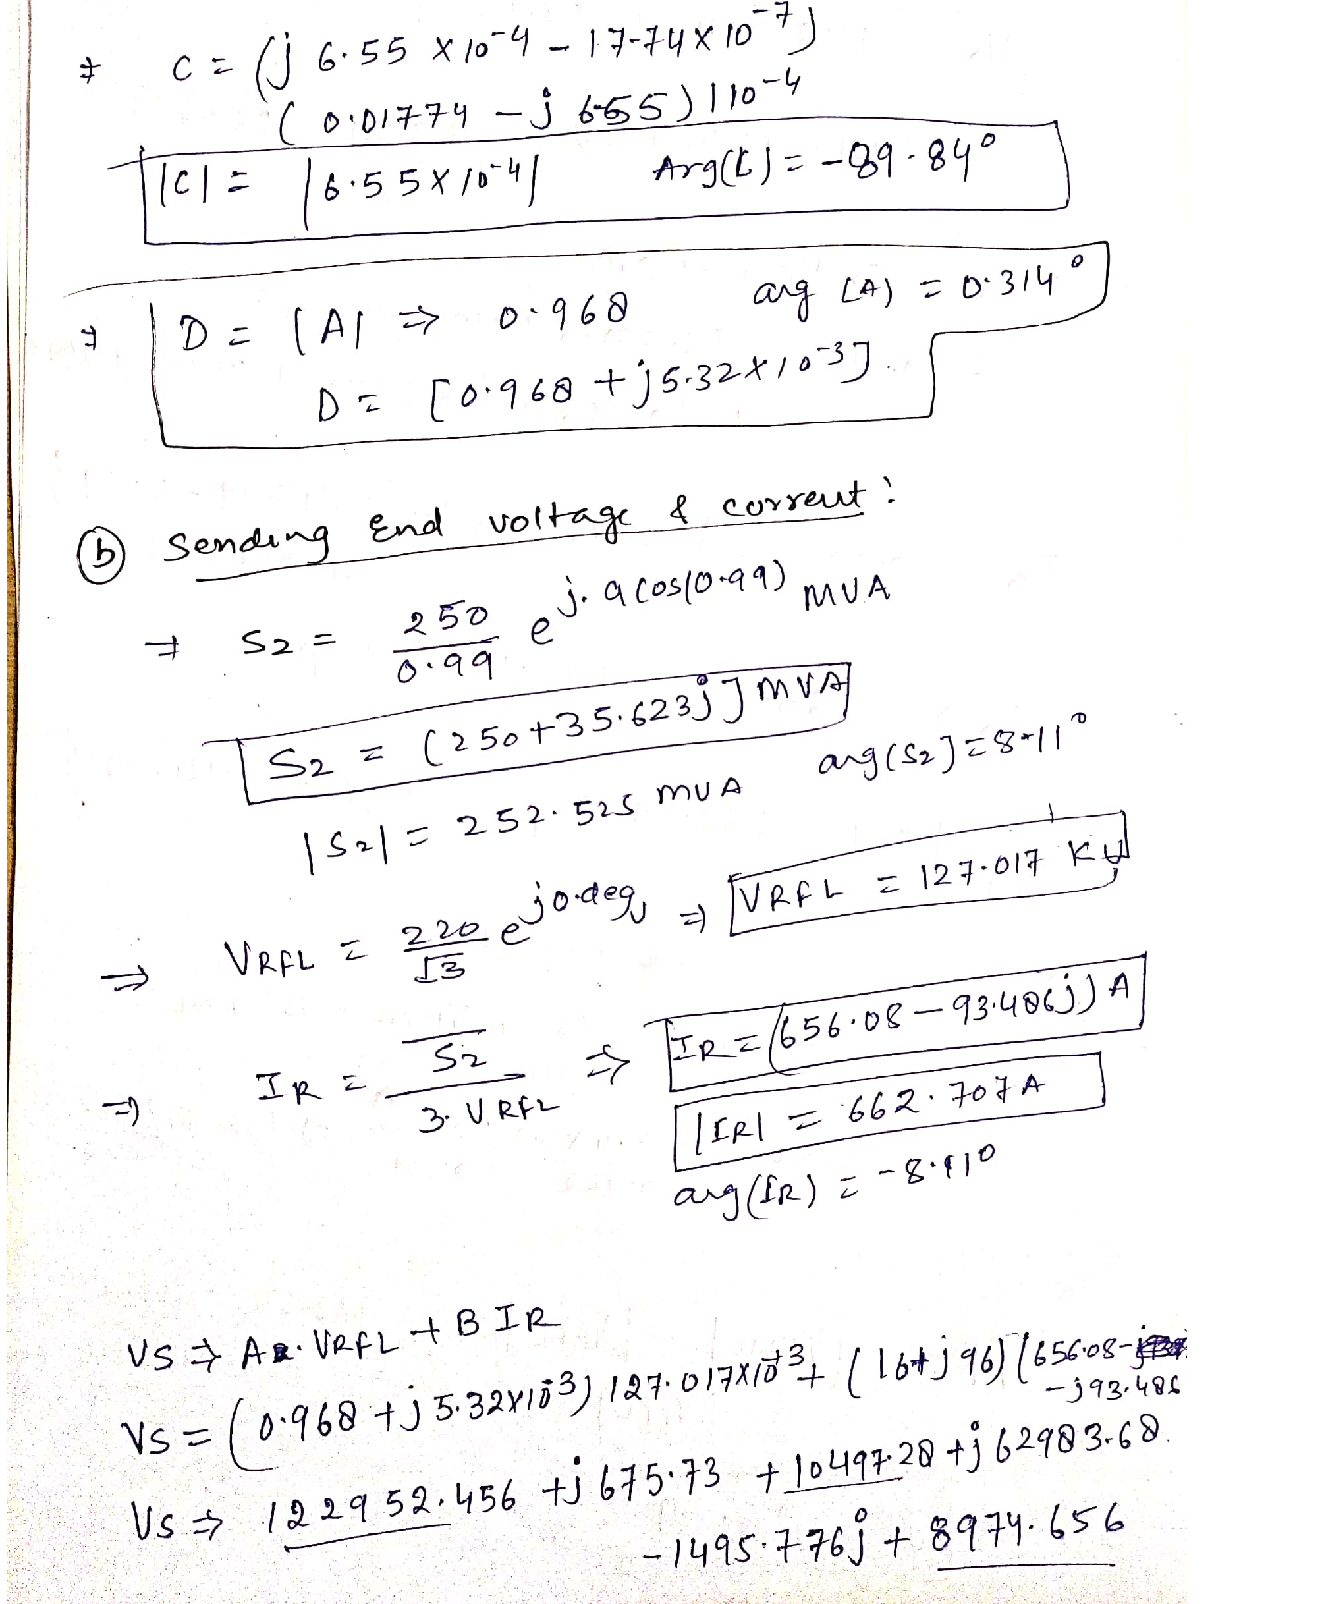 ⇒ C = (j 6.55 × 10^-4 - 17.74 × 10^-7)
(0.01774 - j 6.55) | 10^-4
|C| = |6.55 × 10^-4| Arg(C) = -89.84°
⇒ D = |A| ⇒ 0.968 arg (A) = 0.314°
D = [0.968 + j5.32 × 10^-3].
(b) Sending End voltage & corrent:
⇒ S2 = 250/0.99 e^j.acos(0.99) MVA
S2 = (250+35.623j] MVA
|S2| = 252.525 MVA arg(S2] = 8.11°
⇒ VRFL = 220/√3 e^j0.deg ⇒ VRFL = 127.017 KV
⇒ IR = S̅2/3.VRFL ⇒ IR = (656.08 - 93.486j) A
|IRI = 662.707 A
arg(IR) = -8.110
VS ⇒ A. VRFL + B IR
VS = (0.968 + j 5.32×10^-3) 127.017×10^+3 + (16+j96) (656.08-
-j93.486
VS ⇒ 122952.456 +j 675.73 + 10497.28 +j 62983.68.
-1495.776j + 8974.656